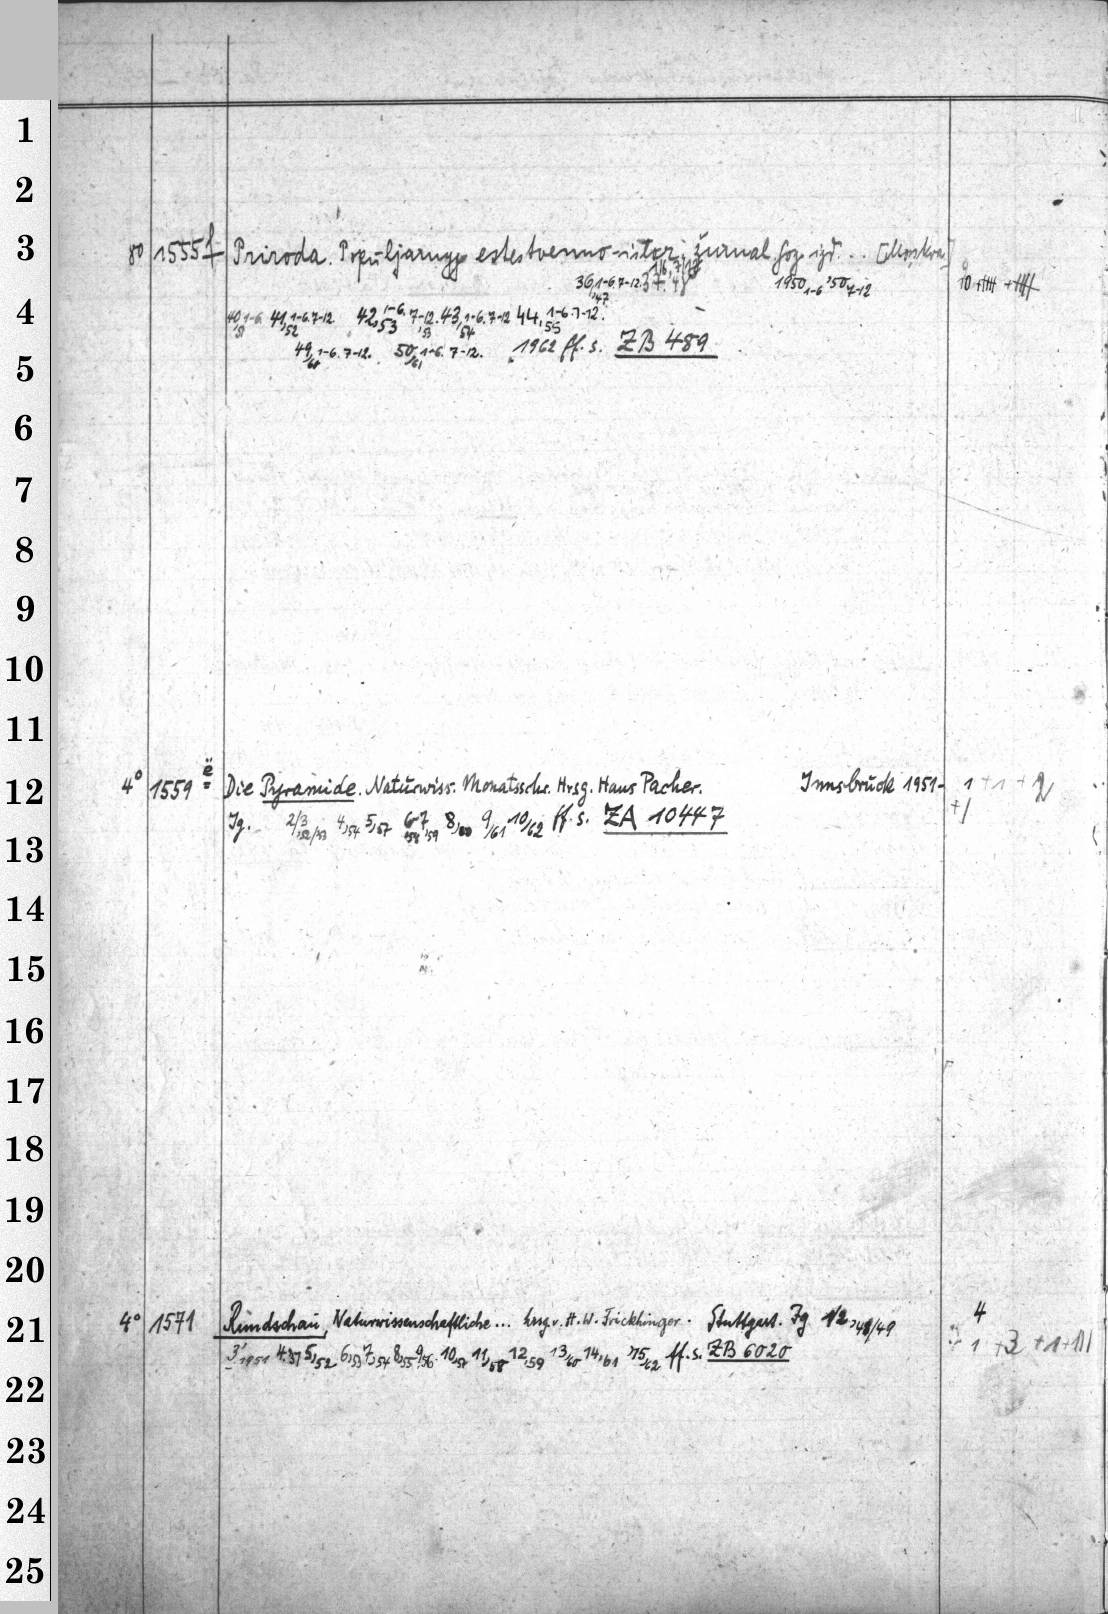 1
2
3 80 1555 f Priroda. Populjarnyj estestvenno-istor. žurnal. Gos. izd. ... [Moskva]
36,1-6.7-12. 1950 1-6 '50 7-12 10
4 40,1-6. 41,1-6.7-12. 42,1-6.7-12. 43,1-6.7-12 44,1-6.7-12.
51 52 53 53 54 55
5 49,1-6.7-12. 50,1-6.7-12. 1962 ff. s. ZB 489
60 61
6
7
8
9
10
11
12 4° 1559 ë Die Pyramide. Naturwiss. Monatsschr. Hrsg. Hans Pacher. Innsbruck 1951- 1 + 1 + 2
Jg. 2/3,52/53 4,54 5,57 6-7,58,59 8,60 9/61 10/62 ff. s. ZA 10447 +1
13
14
15
16
17
18
19
20
21 4° 1571 Rundschau, Naturwissenschaftliche... hrsg. v. H. W. Frickhinger. Stuttgart. Jg 1/2,48/49 4
3,1951 4,51 5,52 6,53 7,54 8,55 9,56 10,57 11,58 12,59 13/60 14,61 15/62 ff. s. ZB 6020 1 + 3 + 1 + 1
22
23
24
25